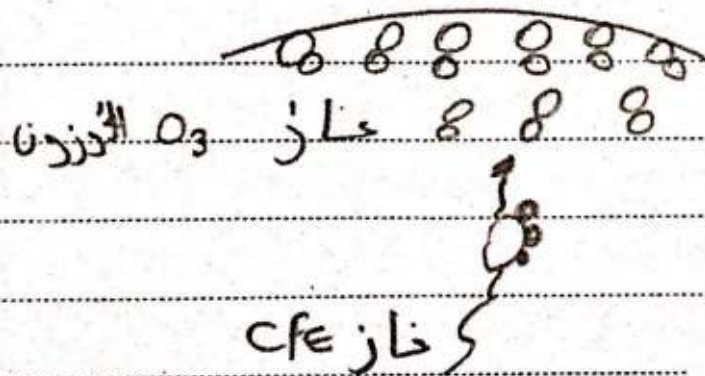 غاز O3 الأوزون
غاز CFC